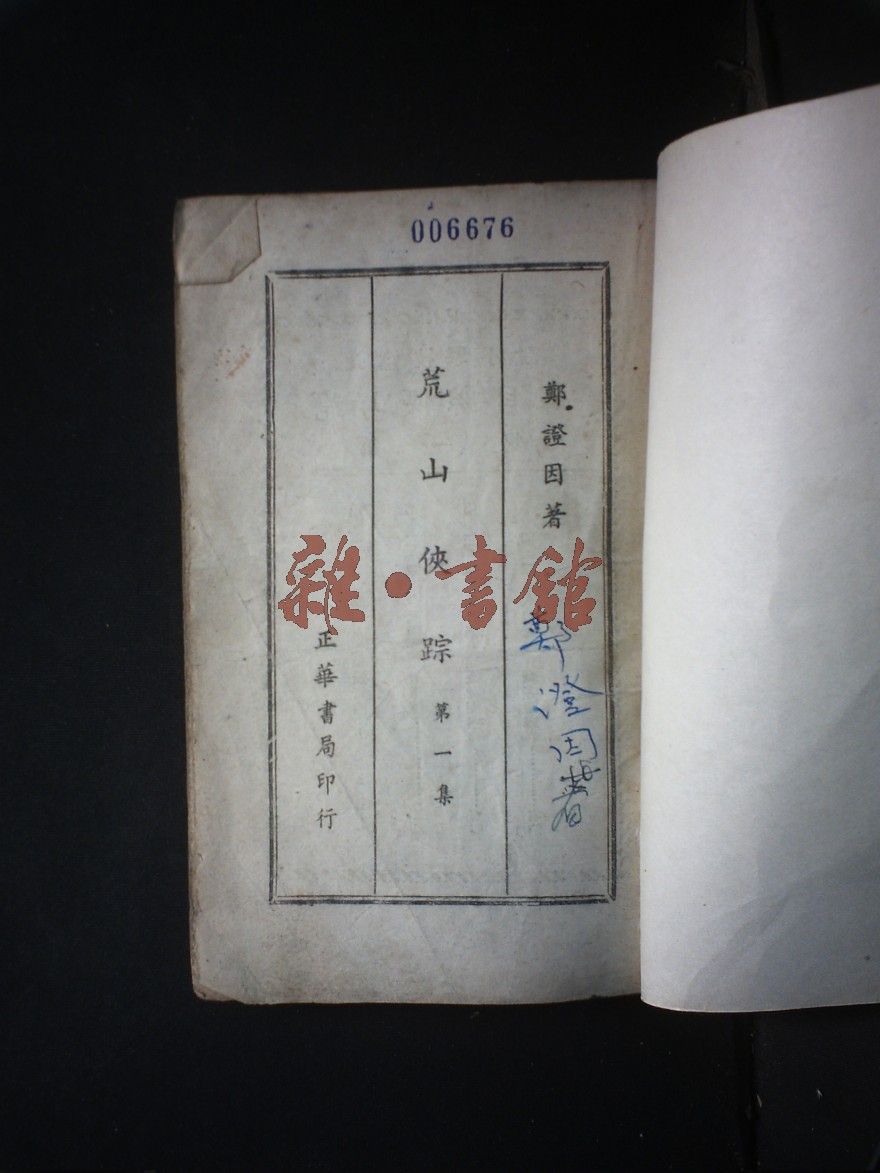 006676
鄭證因著
鄭澄因著
荒山俠踪
第一集
正華書局印行
雜·書館